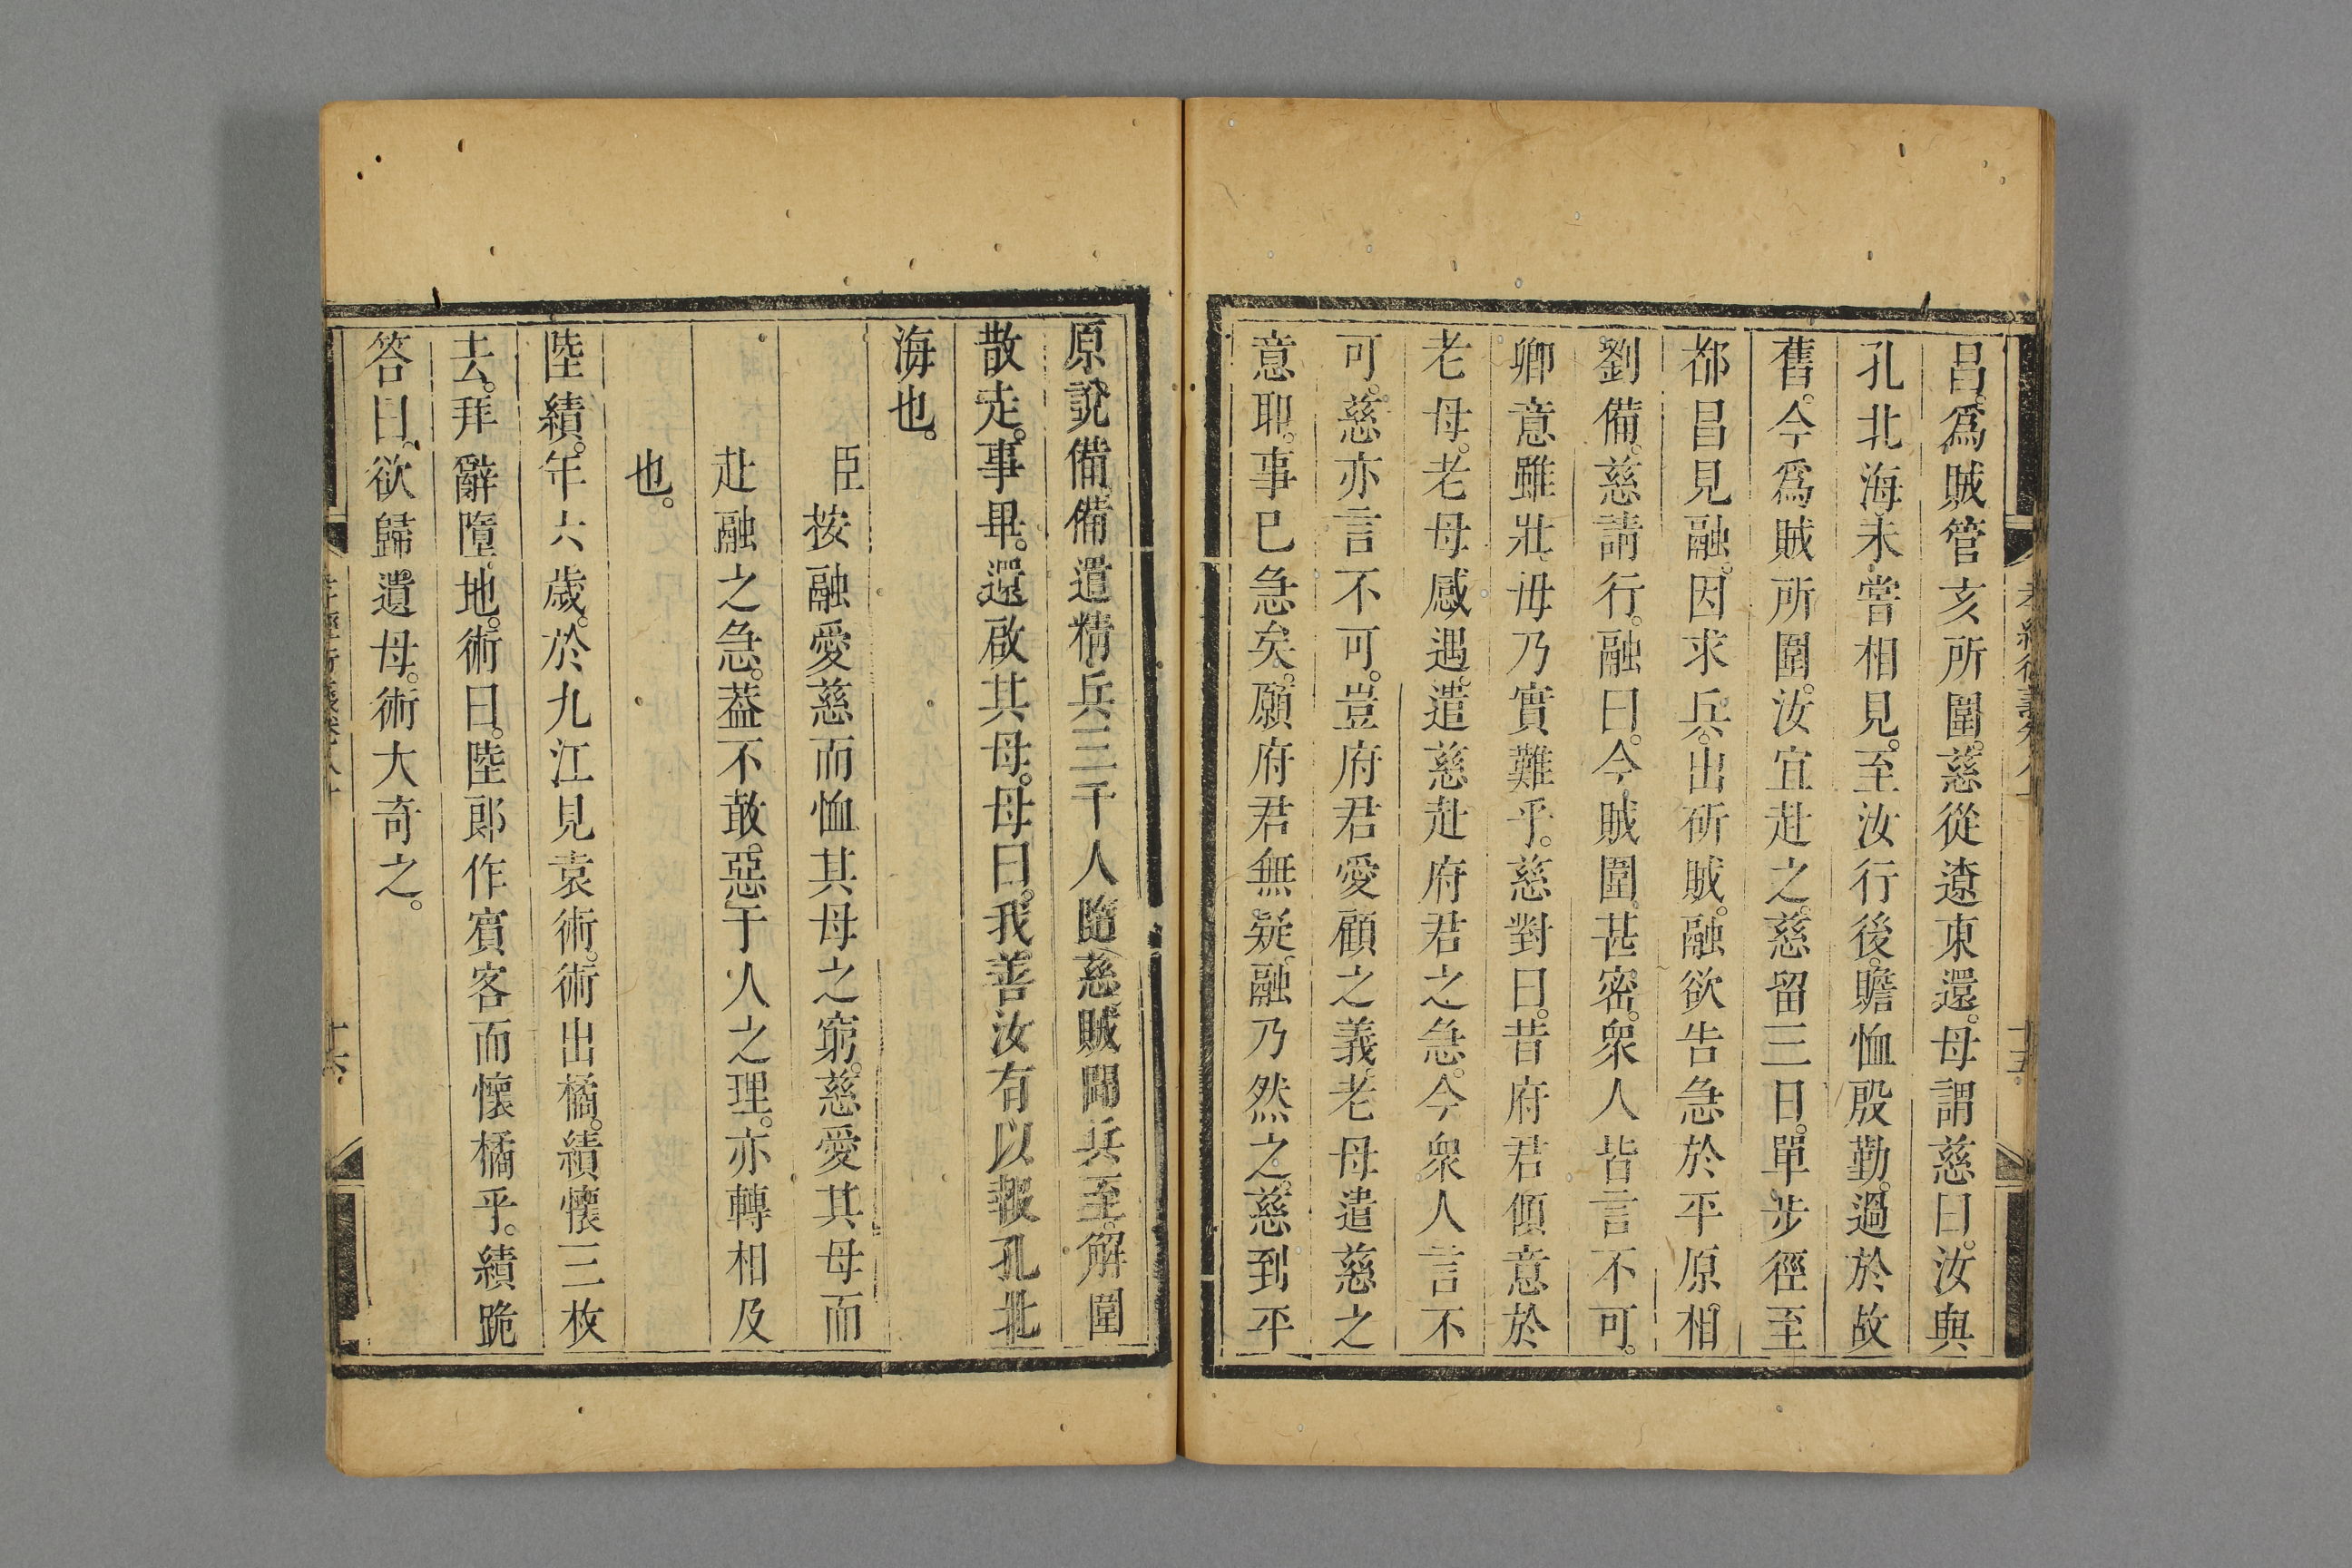 昌。爲賊管亥所圍。慈從遼東還。母謂慈曰。汝與
孔北海未嘗相見。至汝行後。贍恤殷勤。過於故
舊。今爲賊所圍。汝宜赴之。慈留三日。單步徑至
都昌見融。因求兵。出斫賊。融欲告急於平原相
劉備。慈請行。融曰。今賊圍甚密。衆人皆言不可。
卿意雖壯毋乃實難乎。慈對曰。昔府君傾意於
老母。老母感遇。遣慈赴府君之急。今衆人言不
可。慈亦言不可。豈府君愛顧之義。老母遣慈之
意耶。事已急矣。願府君無疑。融乃然之。慈到平
十五
原說備。備遣精兵三千人隨慈。賊聞兵至。解圍
散走。事畢。還啟其母。母曰。我善汝有以報孔北
海也。
臣按融愛慈而恤其母之窮。慈愛其母而
赴融之急。葢不敢惡于人之理。亦轉相及
也。
陸績。年六歲。於九江見袁術。術出橘。績懷三枚
去。拜辭墮地。術曰。陸郎作賓客而懷橘乎。績跪
答曰。欲歸遺母。術大奇之。
十六